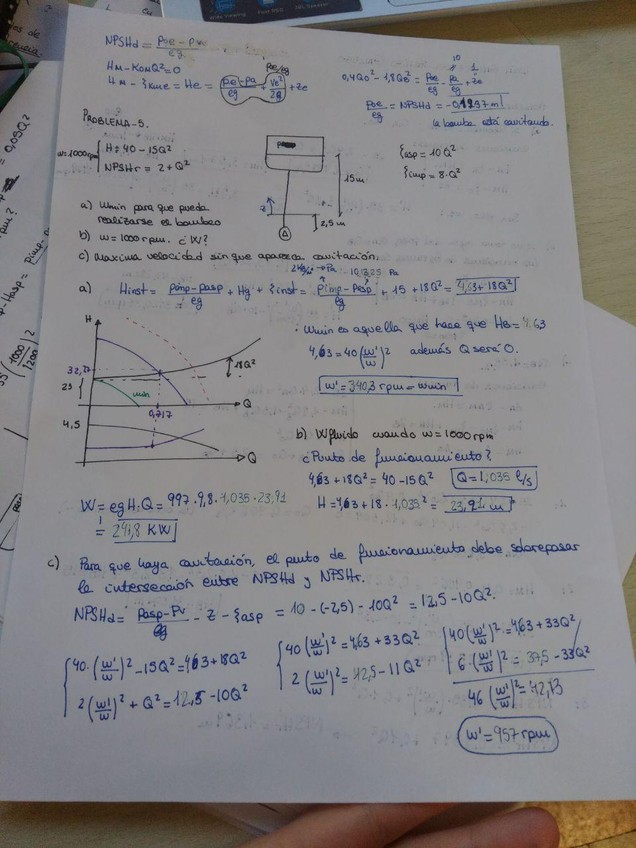 NPSHd = Poe - Pve / eg
Hm - KomQ² = 0
Hm - ξkme = He = (Pe - Pa / eg + Ve² / 2g) + ze
Poe/eg
10
0,4Q0² - 1,8Q0² = Poe / eg - Pa / eg + ze
Poe / eg = NPSHd = -0,1297 m
la bomba está cavitando.
PROBLEMA-5.
w=1000rpm { H = 40 - 15Q²
NPSHr = 2 + Q²
ξasp = 10Q²
ξimp = 8·Q²
15m
z
2,5m
a) Wmin para que pueda
realizarse el bombeo
b) w = 1000 rpm. ¿W?
c) Maxima velocidad sin que aparezca cavitación,
101325 Pa
a) Hinst = Pimp - Pasp / eg + Hg + ξinst = Pimp - Pasp / eg + 15 + 18Q² = 4,63 + 18Q²
H
· Wmin es aquella que hace que HB = 4,63
4,63 = 40 (w'/w)² además Q será 0.
18Q²
w' = 340,3 rpm = wmin
min
Q
0,717
4,5
b) Wfluido cuando w = 1000 rpm
¿Punto de funcionamiento?
4,63 + 18Q² = 40 - 15Q²
Q = 1,035 l/s
Q
W = eg H·Q = 997·9,8·1,035·23,91
H = 4,63 + 18·1,035² = 23,91 m
= 241,8 KW
c) Para que haya cavitación, el punto de funcionamiento debe sobrepasar
la intersección entre NPSHd y NPSHr.
NPSHd = Pasp - Pv / eg - z - ξasp = 10 - (-2,5) - 10Q² = 12,5 - 10Q².
{ 40·(w'/w)² - 15Q² = 4,63 + 18Q²
2 (w'/w)² + Q² = 12,5 - 10Q²
{ 40 (w'/w)² = 4,63 + 33Q²
2 (w'/w)² = 12,5 - 11Q²
{ 40 (w'/w)² = 4,63 + 33Q²
6·(w'/w)² = 37,5 - 33Q²
46 (w'/w)² = 42,13
w' = 957 rpm